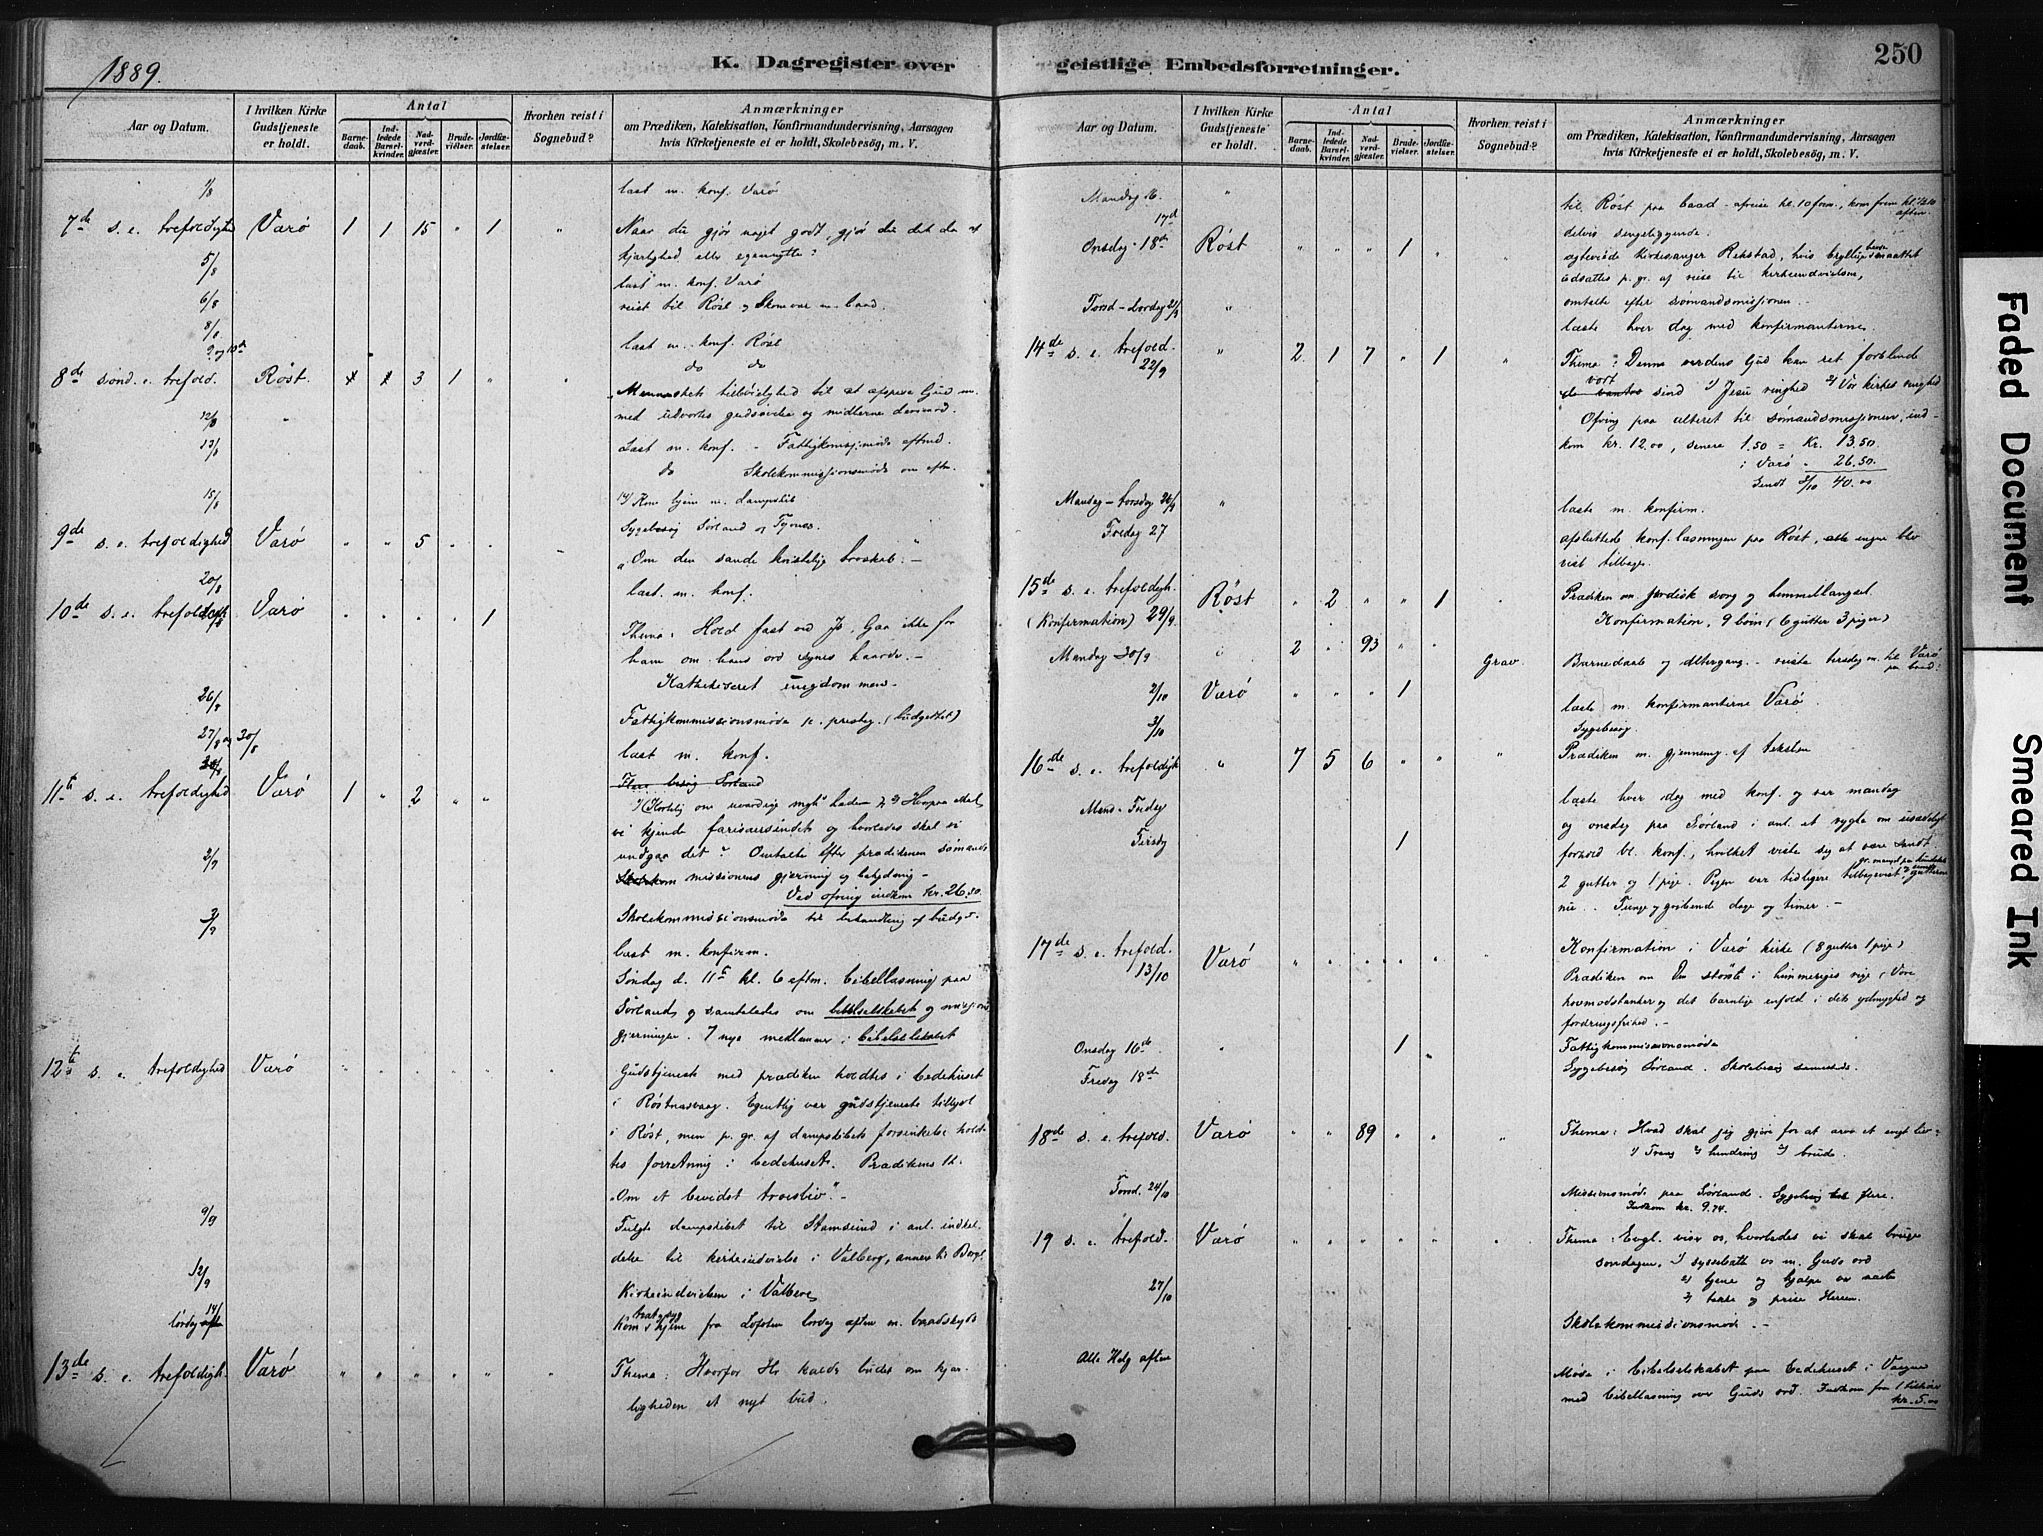 1889.
K. Dagregister over geistlige Embedsforretninger.
250
Aar og Datum.
I hvilken Kirke Gudstjeneste er holdt.
Antal
Barnedaab.
Indledede Barselkvinder.
Nadverdgjæster.
Brudevielser.
Jordfæstelser.
Hvorhen reist i Sognebud?
Anmærkninger
om Prædiken, Katekisation, Konfirmandundervisning, Aarsagen
hvis Kirketjeneste ei er holdt, Skolebesøg, m. V.
1/8 læst m. konf. Varø
7de s. e. trefoldighed Varø 1 1 15 " 1 " Naar du gjør noget godt, gjør du det da af
kjærlighed eller egennytte?
5/8 læst m. konf. Varø
6/8 reist til Røst og Skomvær m. baad.
8/8 læst m. konf. Røst
9 og 10de do do
8de sønd. e. trefold. Røst. 1 1 3 1 " " Menneskets tilbøielighed til at
med udvortes gudsdyrkelse og midlerne derimod.
12/8 Læst m. konf. - Fattigkomsj.møde eftmd.
13/8 do Skolekommissionsmøde om eftm.
14/ Kom hjem m. dampskib
15/8 Sygebesøg Sørland og Tyvnes.
9de s. e. trefoldighed Varø " " 5 " " "Om den sande kristelige broskab." -
20/8 læst. m. konf.
10de s. e. trefoldigh. Varø " " " " 1 Thema: Hold fast ved Js, Gaa ikke fra
ham om hans ord synes haarde. -
Kathekiseret ungdommen -
26/8 Fattigkommissionsmøde i. presteg. (budgettet)
27/8 og 30/8 læst m. konf.
11te s. e. trefoldighed Varø 1 " 2 " "
vi kjende farisæersindet og hvorledes skal vi
undgaa det? Omtalte efter prædikenen sømands
missionens gjerning og betydning -
Ved ofring indkom kr. 26.50
2/9 Skolekommissionsmøde til behandling af budg.
3/9 læst m. konfirm.
Søndag d. 11te kl. 6 eftm. bibellæsning paa
Sørlands og samtaledes om bibelselskabet og missjons
gjerningen. 7 nye medlemmer i bibelselskabet
12te s. e. trefoldighed Varø " " " " " " Gudstjeneste med prædiken holdtes i bedehuset
i Røstnesvaag. Egentlig var gudstjeneste tillyst
i Røst, men p. gr. af dampskibets forsinkelse hold-
tes forretning i bedehuset. Prædikens th.
"Om et bevidst troesliv." -
9/9 Fulgte dampskibet til Stamsund i anl. indkal-
delse til kirkeindvielse i Valberg, annex til Borge
12/9 Kirkeindvielsen i Valberg
lørdag 14/9 Kom hjem fra Lofoten lørdag aften m. baadskyds
13de s. e. trefoldigh. Varø " " " " " " Thema: Hvorfor Hr kalder budet om kjær-
ligheden et nyt bud.
Aar og Datum.
I hvilken Kirke Gudstjeneste er holdt.
Antal
Barnedaab.
Indledede Barselkvinder.
Nadverdgjæster.
Brudevielser.
Jordfæstelser.
Hvorhen reist i Sognebud?
Anmærkninger
om Prædiken, Katekisation, Konfirmandundervisning, Aarsagen
hvis Kirketjeneste ei er holdt, Skolebesøg, m. V.
Mandag 16. " til Røst paa baad - afreise kl. 10 frm, kom frem kl. 1/2 10
aften.
17d delvis sengeliggende.
Onsdag 18de Røst " " " 1 " " Kirkesanger Rekstad, hvis bryllup maattet
udsættes p. gr. af reise til kirkeindvielsen,
omtalte efter sømandsmissionen. -
Torsd - Lørdag 21/9 " læste hver dag med konfirmanterne
14de s. e. trefold. 22/9 " 2 1 7 " 1 " Thema: Denne verdens Gud kan let forblinde
vort sind 1/ Jesu ringhed 2/ Vor kirkes ringhed
Ofring paa alteret til sømandsmissionen, ind-
kom kr. 12.00, senere 1.50 = Kr. 13.50
i Varø - 26.50.
Sendt 3/10 40.00
Mandag - torsdag 26/9 " læste m. konfirm.
Fredag 27 afsluttede konf. læsningen paa Røst, ingen blev
vist tilbage.
15de s. e. trefoldigh. Røst " 2 " " 1 " Prædiken om jordisk sorg og himmellængsel
(Konfirmation) 29/9. Konfirmation, 9 børn (6 gutter 3 piger)
Mandag 30/9 " 2 " 93 " " Grav. Barnedaab og altergang - reiste tirsdag m. til Varø
pr. baad.
2/10 Varø " " " 1 læste m. konfirmanterne Varø
3/10 Sygebesøg
16de s. e. trefoldigh " 7 5 6 " " " Prædiken m. gjennemg. af teksten
Mand - Fredag læste hver dag med konf. og var mandag
og onsdag paa Sørland i anl. et rygte om usædeligt
Tirsdag 1 forhold bl. konf., hvilket viste sig at være sandt.
2 gutter og 1 pige. Pigen var tidligere tilbagevist,
nu. Tunge og gribende dage og timer. -
17de s. e. trefold. 13/10 Varø " " " " " " Konfirmation i Varø kirke (8 gutter 1 pige)
Prædiken om Den største i himmeriges rige (Vore
hovmodstanker og det barnlige enfold i dets ydmyghed og
fordringsfrihed. -
Onsdag 16de " 1 " Fattigkommissionsmøde
Fredag 18de Sygebesøg Sørland. Skolebesøg sammesteds.
18de s. e. trefold. Varø " " 89 " " " Thema: Hvad skal jeg gjøre for at arve et evigt liv?
1/ Trang 2/ hindring 3/ brude.
Torsd. 24/10 Missionsmøde paa Sørland. Sygebesøg flere.
Indkom kr. 9.74.
19 s. e. trefold. Varø " " " " " " Thema: Evgl. viser os, hvorledes vi skal bruge
søndagen. 1/ sysselsætte os m. Guds ord
2/ tjene og hjælpe vor næste
3/ takke og prise Herren.
27/10 Skolekommissionsmøde. -
Alle Helg. aften Møde i bibelselskabet paa bedehuset i
med bibellæsning over Guds ord. Indkom fra 1 bøsse
kr. 5.00
Faded Document
Smeared Ink